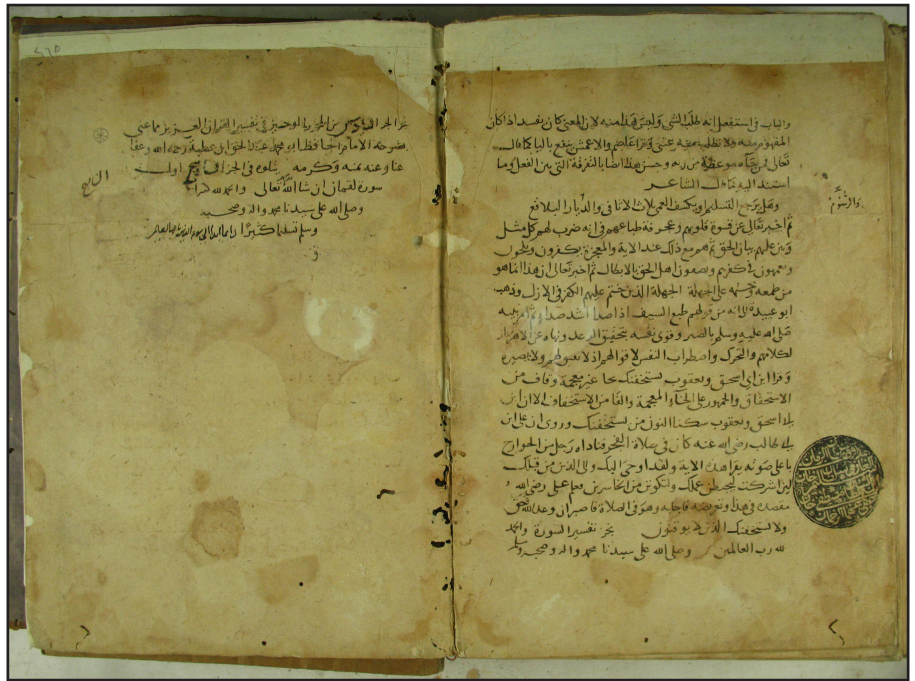 والباب في استفعل انه طلب الشي وليس هذا منه لان المعنى كان يفسد اذا كان
المفهوم منه ولا تطلب منه عتبى وقرا عاصم والاعمش ينفع باليا كما قال
تعالى فمن جاه موعظة من ربه وحسن هذا ايضا بالتفرقة التي بين الفعل وما
استند اليه كما قال الشاعر
وهل يرجع التسليم او يكشف العمى ثلاث الاثافي والديار البلاقع
والرسوم
ثم اخبر تعالى عن قسوة قلوبهم وعجرفة طباعهم في انه ضرب لهم كل مثل
وبين عليهم بيان الحق ثم هم مع ذلك عند الاية والمعجزة يكفرون ويلجون
ويعمهون في كفرهم ويصفون اهل الحق بالابطال ثم اخبر تعالى ان هذا انما هو
من طبعه وختمه على الجهلة الذين ختم عليهم الكفر في الازل وذهب
ابو عبيدة الى انه من قولهم طبع السيف اذا صدا اشد صدا ثم امر نبيه
صلى الله عليه وسلم بالصبر وقوى نفسه بتحقيق الوعد ونهاه عن الاهتزاز
لكلامهم والتحرك واضطراب النفس لاقوالهم اذ لا يقين لهم ولا بصيرة
وقرا ابن ابي اسحق ويعقوب يستحقنك بحا غير معجمة وقاف من
الاستحقاق والجمهور على الخاء المعجمة والفا من الاستخفاف الا ان ابن
ابي اسحق ويعقوب سكنا النون من يستخفنك وروى ان علي ابن
ابي طالب رضي الله عنه كان في صلاة الفجر فناداه رجل من الخوارج
باعلى صوته يقرا هذه الاية ولقد اوحي اليك والى الذين من قبلك
لين اشركت ليحبطن عملك ولتكونن من الخاسرين فعلم علي رضي الله
مقصده في هذا وتعريضه فاجابه وهو في الصلاة فاصبر ان وعد الله حق
ولا يستخفنك الذين لا يوقنون نجز تفسير السورة والحمد
لله رب العالمين وصلى الله على سيدنا محمد واله وصحبه وسلم
الجز السادس من المحرر الوجيز في تفسير القران العزيز مما عني
بوضوحه الامام الحافظ ابو محمد عبد الحق ابن عطية رحمه الله وعفا
عنا وعنه بمنه وكرمه يتلوه في الجز اول
سورة لقمان ان شا الله تعالى والحمد لله
وصلى الله على سيدنا محمد واله وصحبه
وسلم تسليما كثيرا